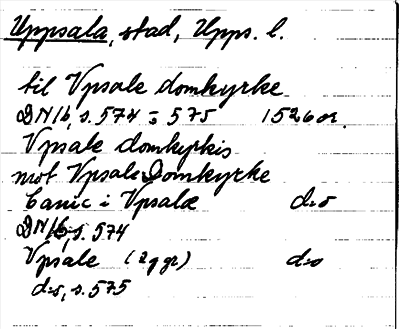 Uppsala, stad, Upps. l.
til Vpsale domkyrke
DN16, s. 574 - 575 1526 or.
Vpsale domkyrkis
mot Vpsale Domkyrke
Canic i Vpsale d:o
DN16, s. 574
Vpsale (2 ggr) d:o
d:s, s. 575